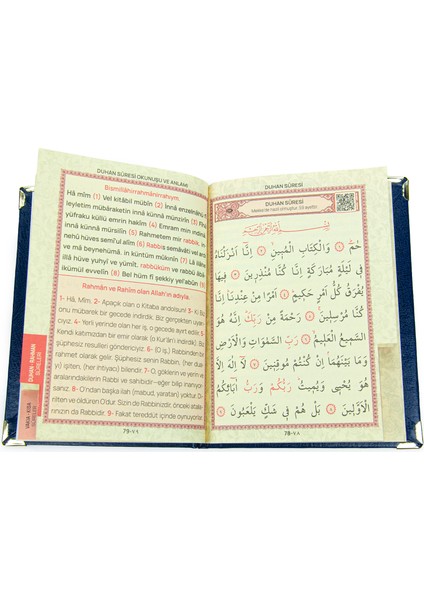 DUHAN SÛRESİ OKUNUŞU VE ANLAMI
Bismillâhirrahmânirrahıym.
Hâ mîm (1) Vel kitâbil mübîn (2) İnnâ enzelnâhü
leyletim mübâraketin innâ künnâ münzirîn (3)
yüfraku küllü emrin hakîm (4) Emram min indina
innâ künnâ mürsilîn (5) Rahmetem mir rabbik, in
nehû hüves semî'ul alîm (6) Rabbis semâvâti vel ar
ve mâ beynehümâ. in küntüm mûkınîn (7) Lâ ilâhe
illâ hüve yuhyî ve yümît. rabbüküm ve rabbü âbâ
ikümül evvelîn (8) Bel hüm fî şekkiy yel'abûn
Rahmân ve Rahîm olan Allah'ın adıyla.
1- Hâ, Mîm. 2- Apaçık olan o Kitaba andolsun! 3- Ki B
onu mübarek bir gecede indirdik. Biz gerçekten uyarı
cıyız. 4- Yerli yerinde olan her iş, o gecede ayırt edi
Kendi katımızdan bir emir olarak (o Kur'ânı indirdik). B
şüphesiz resulleri göndereniz. 6- (O iş,) Rabbinden bir
rahmet olarak gelir. Şüphesiz senin Rabbin, (her du
yı) işiten, (her ihtiyacı) bilendir. 7- O, göklerin ve yerin
aralarındakilerin Rabbi ve sahibidir -eğer bilip inanıyo
sanız. 8- O'ndan başka ilah (mabud, yaratan) yoktur
ltlen ve öldüren O'dur. Sizin de Rabbinizdir, önceki ata
larınızın da Rabbidir. 9- Fakat tereddüt içinde oynayıp
79-٧٩
DUHAN - RAHMÂN
SÛRELERİ
DUHAN SÛRESİ
DUHAN SÛRESİ
Mekke'de nazil olmuştur. 59 ayettir.
بِسْمِ اللّٰهِ الرَّحْمٰنِ الرَّحِيمِ
حٰمٓ ﴿١﴾ وَالْكِتَابِ الْمُبِينِ ﴿٢﴾ اِنَّٓا اَنْزَلْنَاهُ
فِي لَيْلَةٍ مُبَارَكَةٍ اِنَّا كُنَّا مُنْذِرِينَ ﴿٣﴾ فِيهَا
يُفْرَقُ كُلُّ اَمْرٍ حَكِيمٍ ﴿٤﴾ اَمْرًا مِنْ عِنْدِنَا اِنَّا
كُنَّا مُرْسِلِينَ ﴿٥﴾ رَحْمَةً مِنْ رَبِّكَ اِنَّهُ هُوَ
السَّمِيعُ الْعَلِيمُ ﴿٦﴾ رَبِّ السَّمٰوَاتِ وَالْاَرْضِ
وَمَا بَيْنَهُمَا اِنْ كُنْتُمْ مُوقِنِينَ ﴿٧﴾ لَٓا اِلٰهَ اِلَّا
هُوَ يُحْيِي وَيُمِيتُ رَبُّكُمْ وَرَبُّ اٰبَٓائِكُمُ
الْاَوَّلِينَ ﴿٨﴾ بَلْ هُمْ فِي شَكٍّ يَلْعَبُونَ ﴿٩﴾
78-٧٨